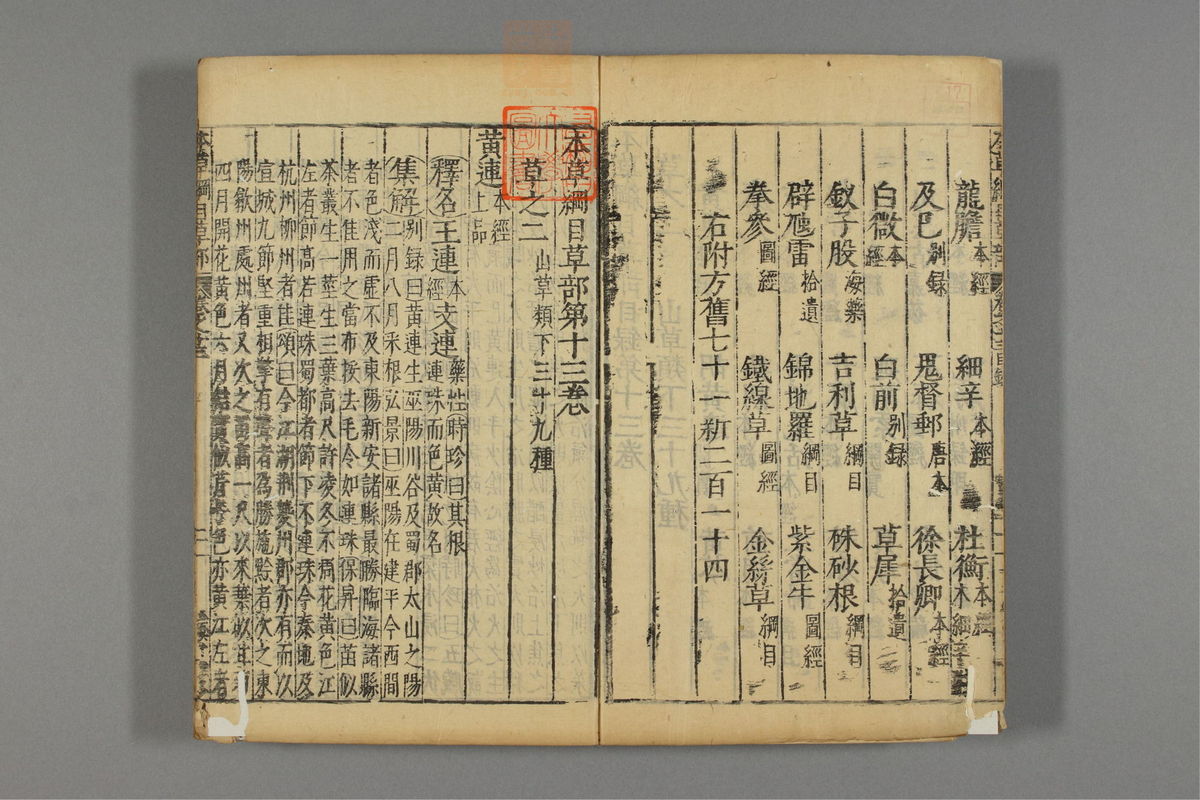 龍膽本經 細辛本經 杜衡 木細辛
及已別録 鬼督郵唐本 徐長卿本經
白微本經 白前别録 草犀拾遺
釵子股海藥 吉利草綱目 硃砂根綱目
辟虺雷拾遺 錦地羅綱目 紫金牛圖經
拳參圖經 鐵線草圖經 金絲草綱目
右附方舊七十一新二百一十四
本草綱目草部第十三卷
草之二 山草類下三十九種
黃連本經上品
釋名王連本經支連藥性時珍曰其根連珠而色黃故名
集解别録曰黃連生巫陽川谷及蜀郡太山之陽
二月八月采根弘景曰巫陽在建平今西間
者色淺而虛不及東陽新安諸縣最勝臨海諸縣
者不佳用之當布裹挼去毛令如連珠保昇曰苗似
茶叢生一莖生三葉高尺許凌冬不凋花黃色江
左者節高若連珠蜀都者節下不連珠今秦地及
杭州柳州者佳頌曰今江湖荆夔州郡亦有而以
宣城九節堅重相擊有聲者為勝施黔者次之東
陽歙州處州者又次之苗高一尺以來葉似甘菊
四月開花黃色六月結實似芹子色亦黃江左者